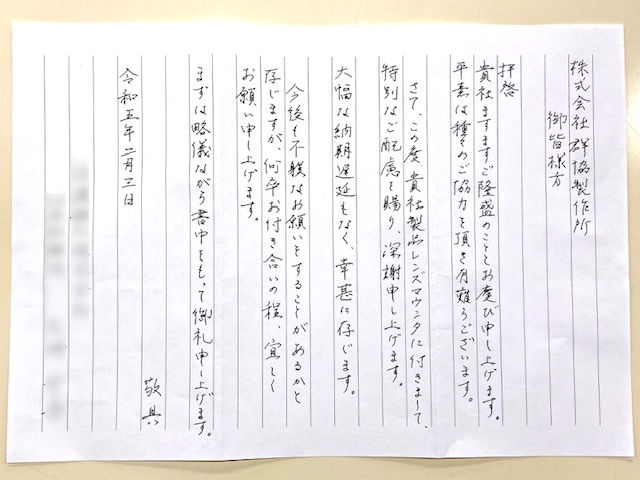 株式会社 群協製作所
御皆様方
拝啓
貴社ますますご隆盛のこととお慶び申し上げます。
平素は種々のご協力を頂き有難うございます。
さて、この度、貴社製品レンズマウンタに付きまして、
特別なご配慮を賜り、深謝申し上げます。
大幅な納期遅延もなく、幸甚に存じます。
今後も不躾なお願いをすることがあるかと
存じますが、何卒お付き合いの程、宜しく
お願い申し上げます。
まずは略儀ながら書中をもって御礼申し上げます。
敬具
令和五年二月三日